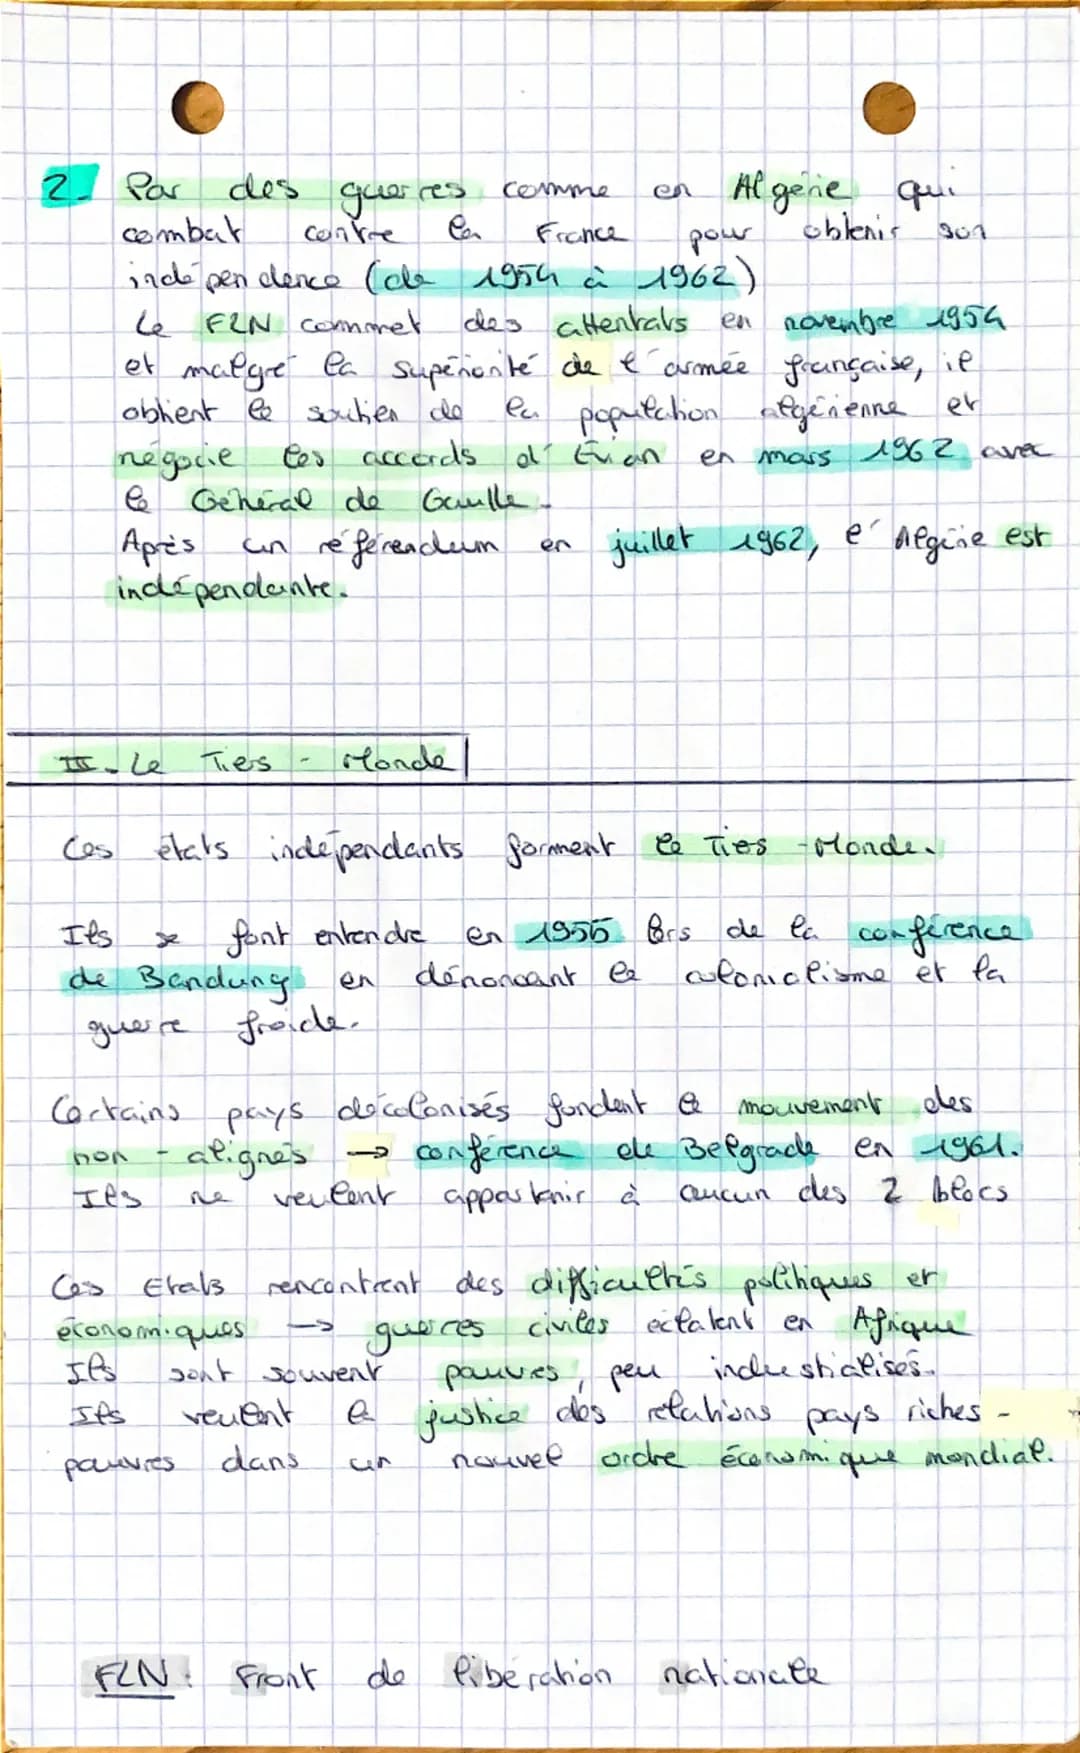 2. Par des guerres comme en Algérie qui
combat contre la France pour obtenir son
indépendence (de 1954 à 1962)
Le FLN commet des attentats en novembre 1954
et malgré la supériorité de l'armée française, il
obtient le soutien de la population algérienne et
négocie les accords d'Evian en mars 1962 avec
le Général de Gaulle.
Après un référendum en juillet 1962, l'Algérie est
indépendante.
III. Le Tiers-Monde
Ces états indépendants forment le Tiers-Monde.
Ils se font entendre en 1955 lors de la conférence
de Bandung en dénoncant le colonialisme et la
guerre froide.
Certains pays décolonisés fondent le mouvement des
non-alignés → conférence de Belgrade en 1961.
Ils ne veulent appartenir à aucun des 2 blocs
Ces Etats rencontrent des difficultés politiques et
économiques → guerres civiles éclatent en Afrique
Ils sont souvent pauvres, peu industrialisés.
Ils veulent la justice des relations pays riches-
pauvres dans un nouvel ordre économique mondial.
FLN : Front de libération nationale